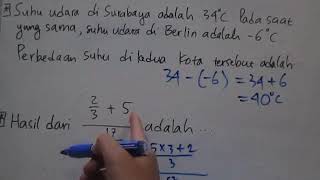 Suhu udara di Surabaya adalah 34°C Pada saat
yang sama, suhu udara di Berlin adalah -6°C
Perbedaan suhu di kedua kota tersebut adalah
34 - (-6) = 34 + 6
= 40°C
2/3 + 5
Hasil dari adalah ...
17
5 x 3 + 2
3